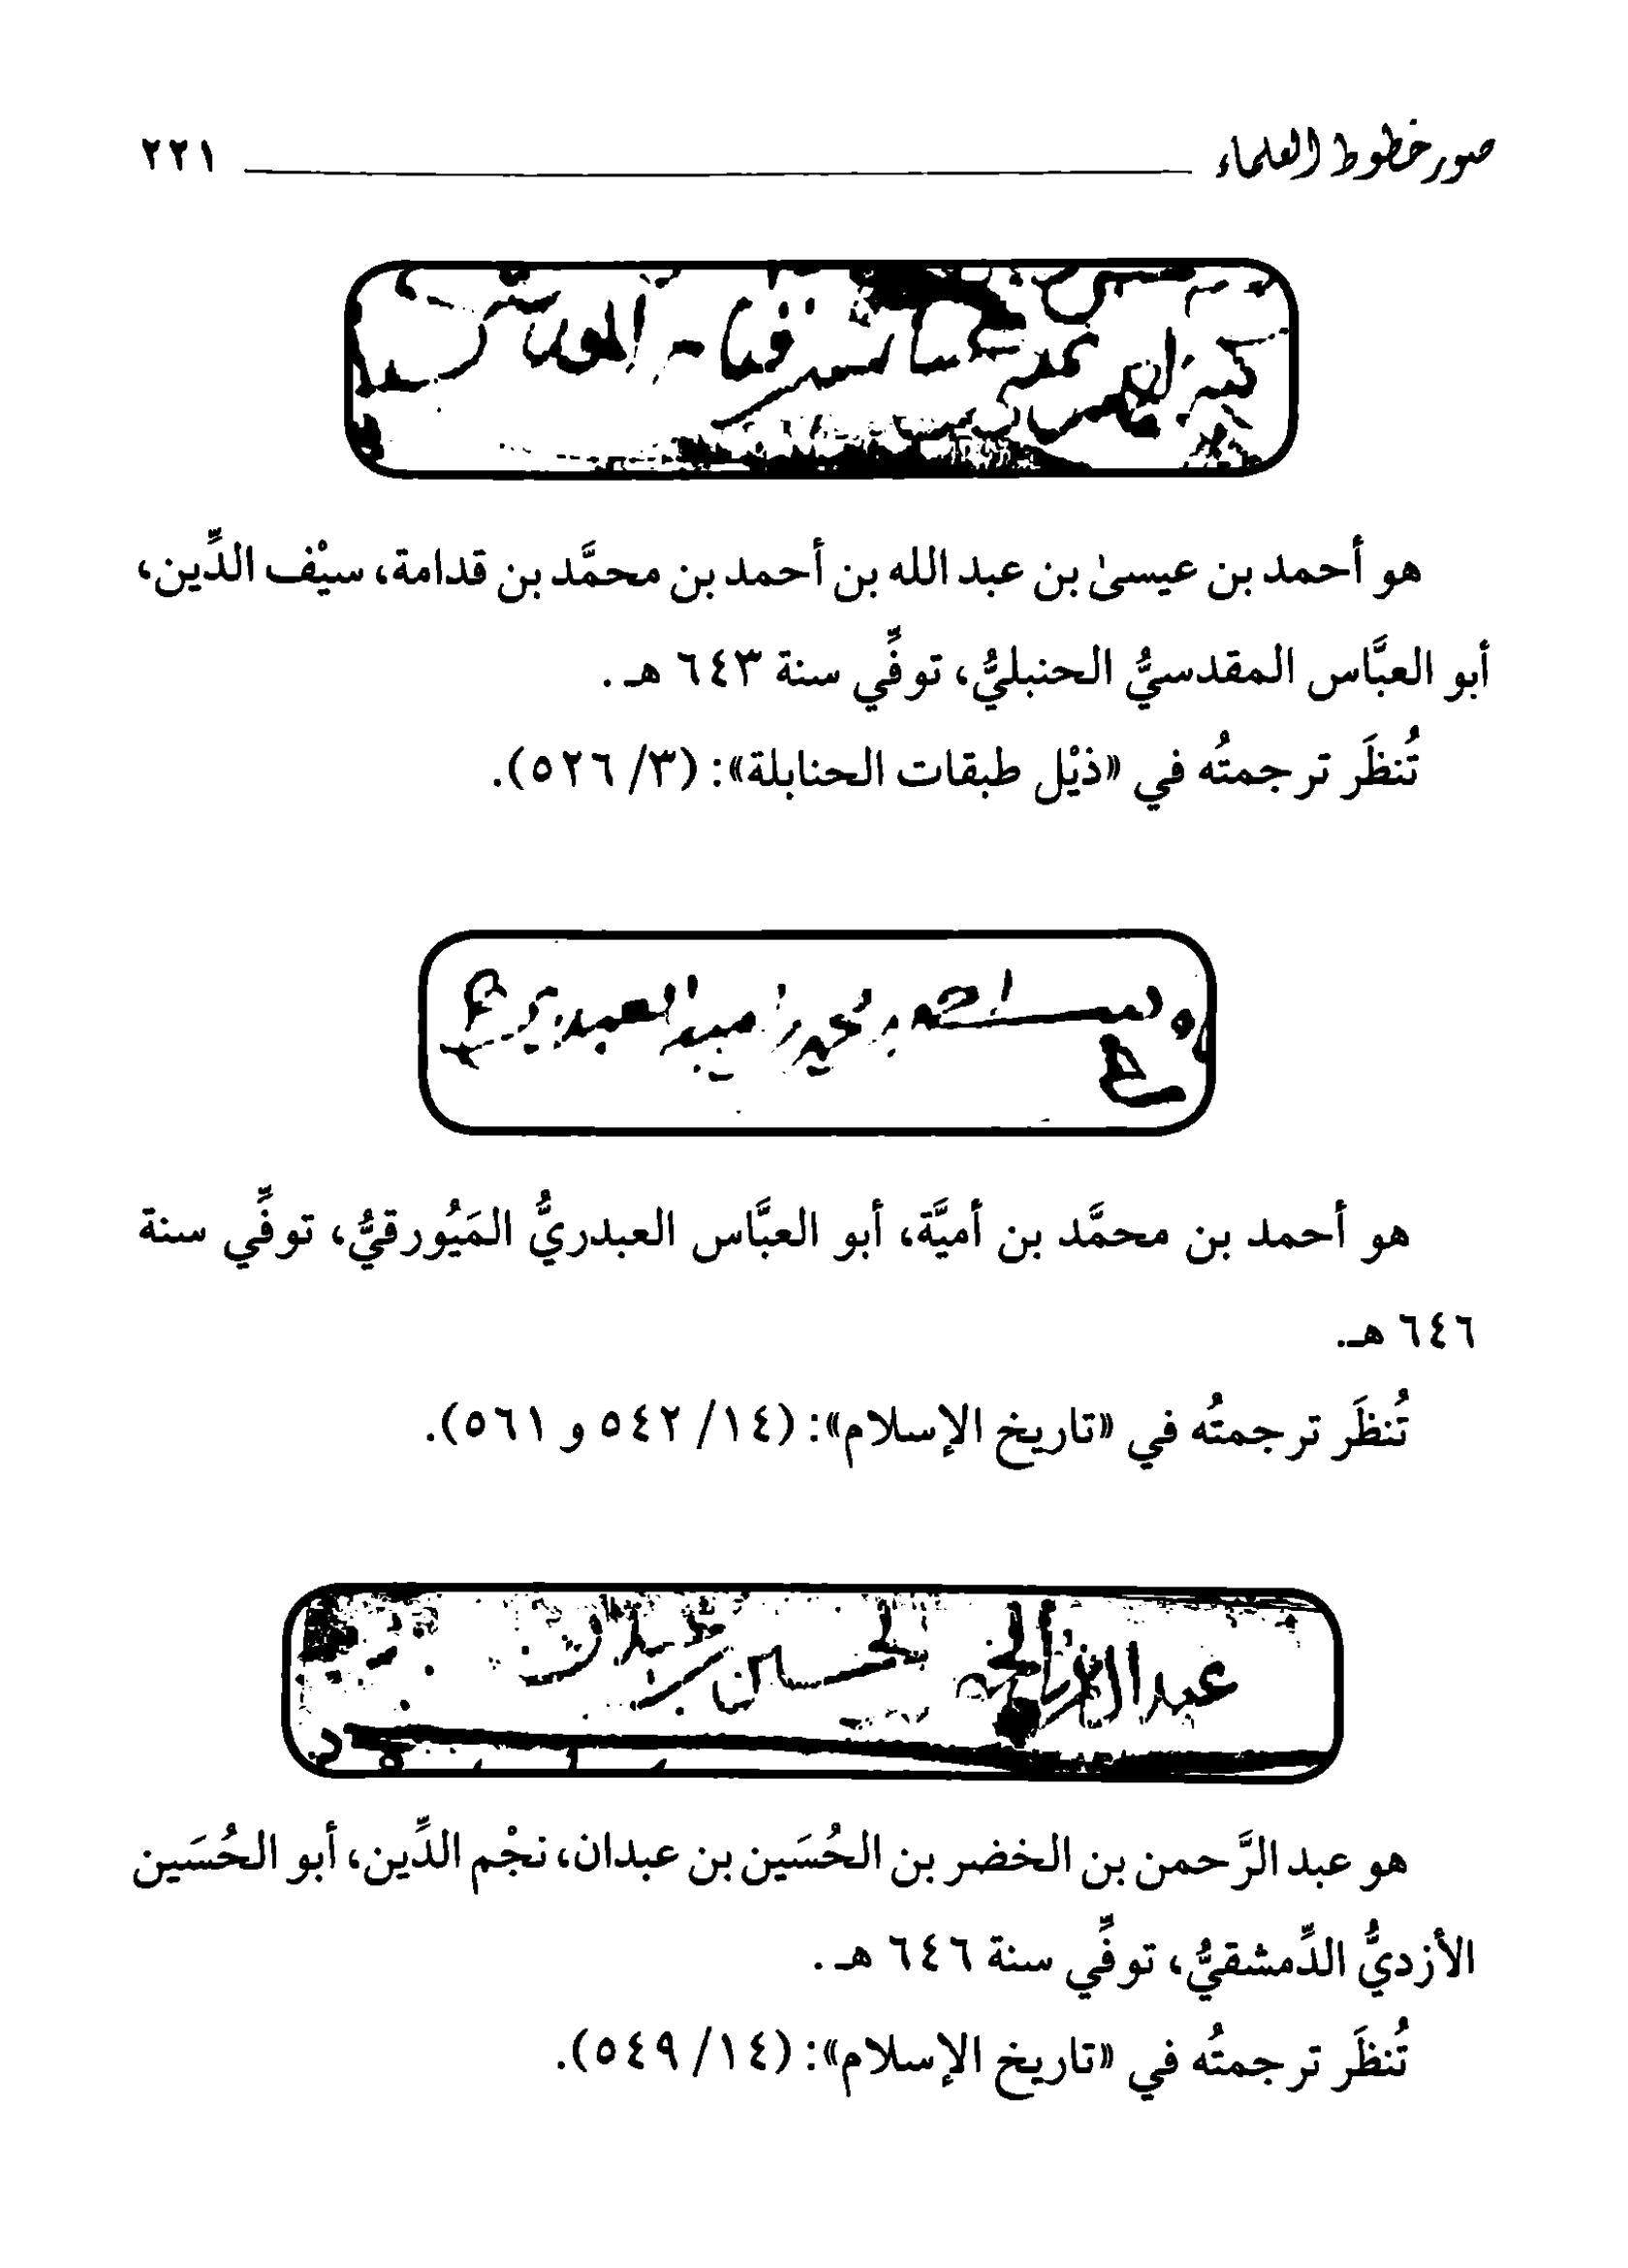 صور خطوط العلماء ٢٢١
هو أحمد بن عيسىٰ بن عبد الله بن أحمد بن محمَّد بن قدامة، سيْف الدِّين،
أبو العبَّاس المقدسيُّ الحنبليُّ، توفِّي سنة ٦٤٣ هـ.
تُنظَر ترجمتُه في «ذيْل طبقات الحنابلة»: (٣/ ٥٢٦).
بن محمد بن أمية العبدري
هو أحمد بن محمَّد بن أميَّة، أبو العبَّاس العبدريُّ المَيُورقيُّ، توفِّي سنة
٦٤٦ هـ.
تُنظَر ترجمتُه في «تاريخ الإسلام»: (١٤/ ٥٤٢ و ٥٦١).
عبد الرحمن الحسين بن عبدان
هو عبد الرَّحمن بن الخضر بن الحُسَين بن عبدان، نجْم الدِّين، أبو الحُسَين
الأزديُّ الدِّمشقيُّ، توفِّي سنة ٦٤٦ هـ.
تُنظَر ترجمتُه في «تاريخ الإسلام»: (١٤/ ٥٤٩).